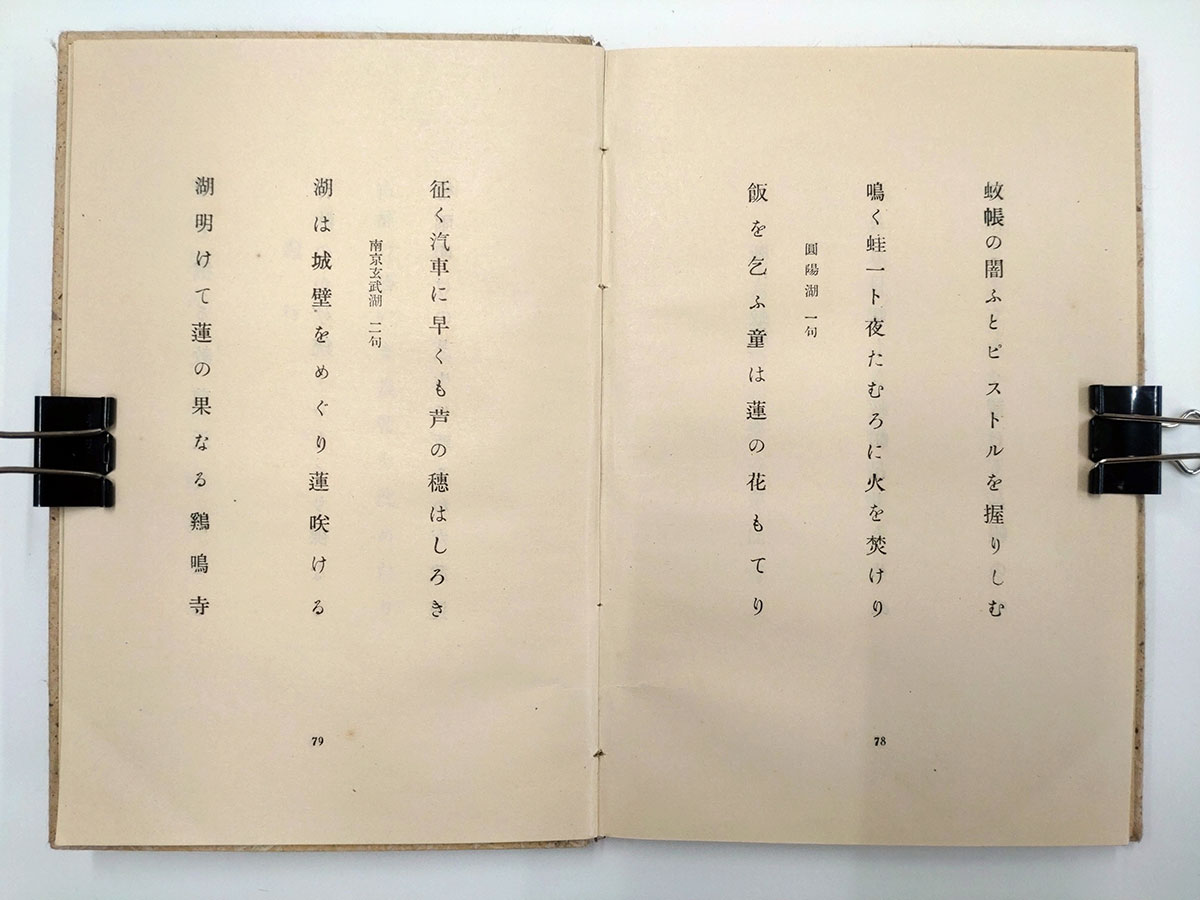 蚊帳の闇ふとピストルを握りしむ
鳴く蛙一ト夜たむろに火を焚けり
圓陽湖 一句
飯を乞ふ童は蓮の花もてり
78
征く汽車に早くも芦の穗はしろき
南京玄武湖 二句
湖は城壁をめぐり蓮咲ける
湖明けて蓮の果なる鷄鳴寺
79